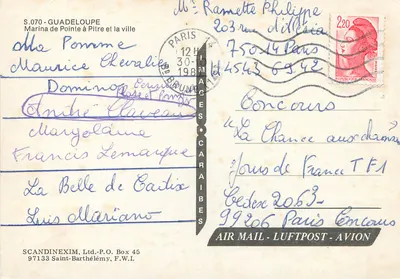 S.070 - GUADELOUPE
Marina de Pointe à Pitre et la ville
Ma Pomme
Maurice Chevalier
Domino
André Claveau
Margolaine
Francis Lemarque
La Belle de Cadix
Luis Mariano
SCANDINEXIM, Ltd.-P.O. Box 45
97133 Saint-Barthélemy, F.W.I.
IMAGES CARAIBES
PARIS 14
12H
30-
Mr Ramette Philippe
203 rue
75014 Paris
45 43 69.42
2,20
Concours
"La Chance aux chansons
Jours de France TF1
Cedex 2063
99206 Paris Concours
AIR MAIL - LUFTPOST - AVION